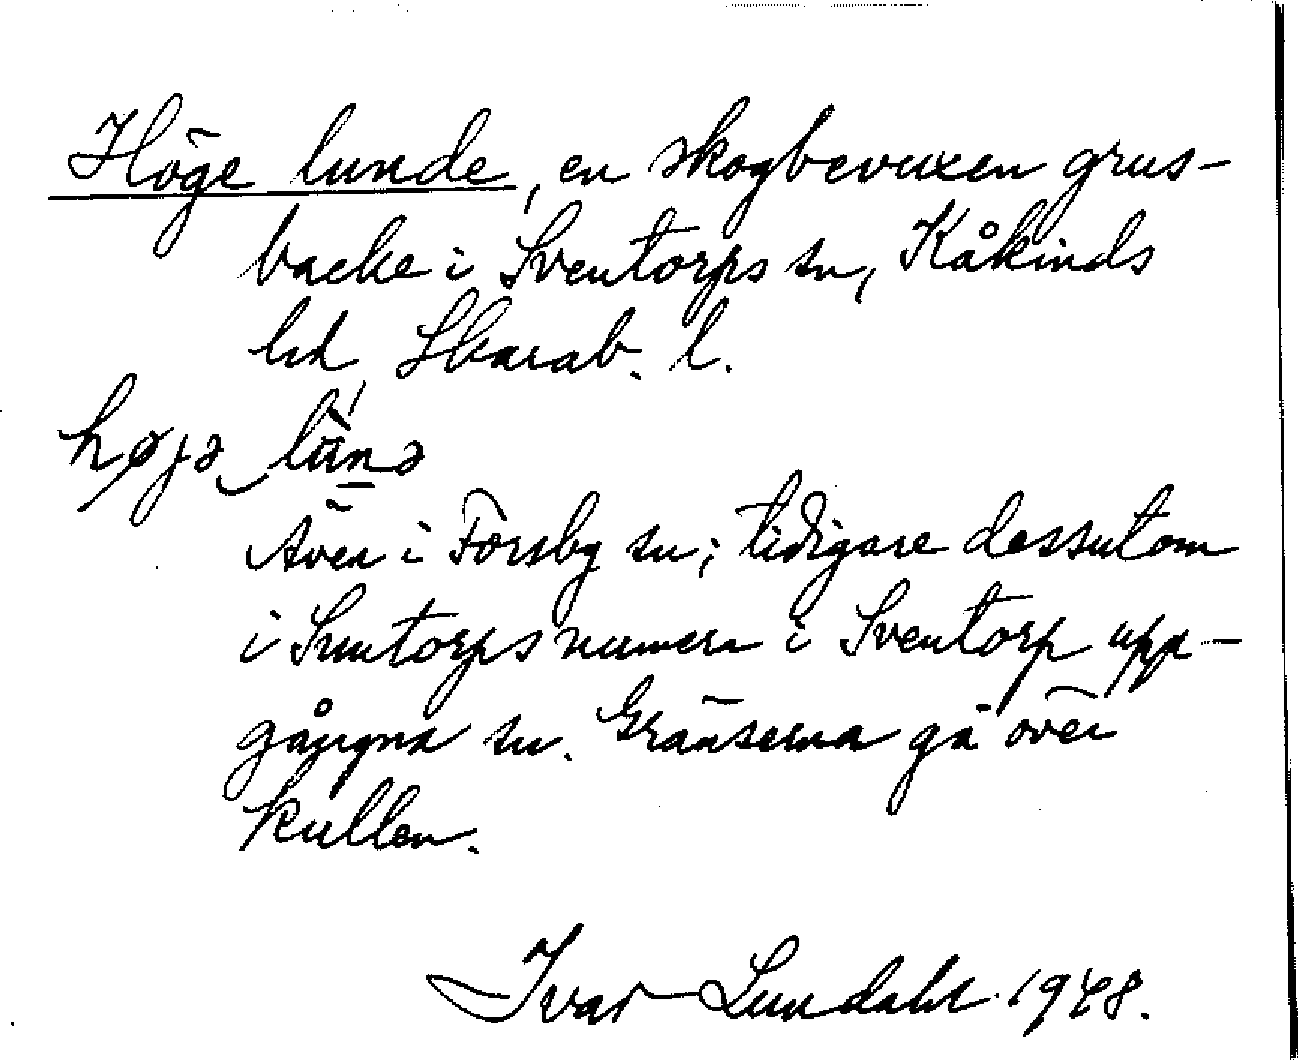 Höge lunde, en skogbevuxen grus-
backe i Sventorps sn, Kåkinds
hd, Skarab. l.
højə lünə
Även i Forsby sn; tidigare dessutom
i Suntorps numera i Sventorp upp-
gångna sn. Gränserna gå över
kullen.
Ivar Lundahl 1948.